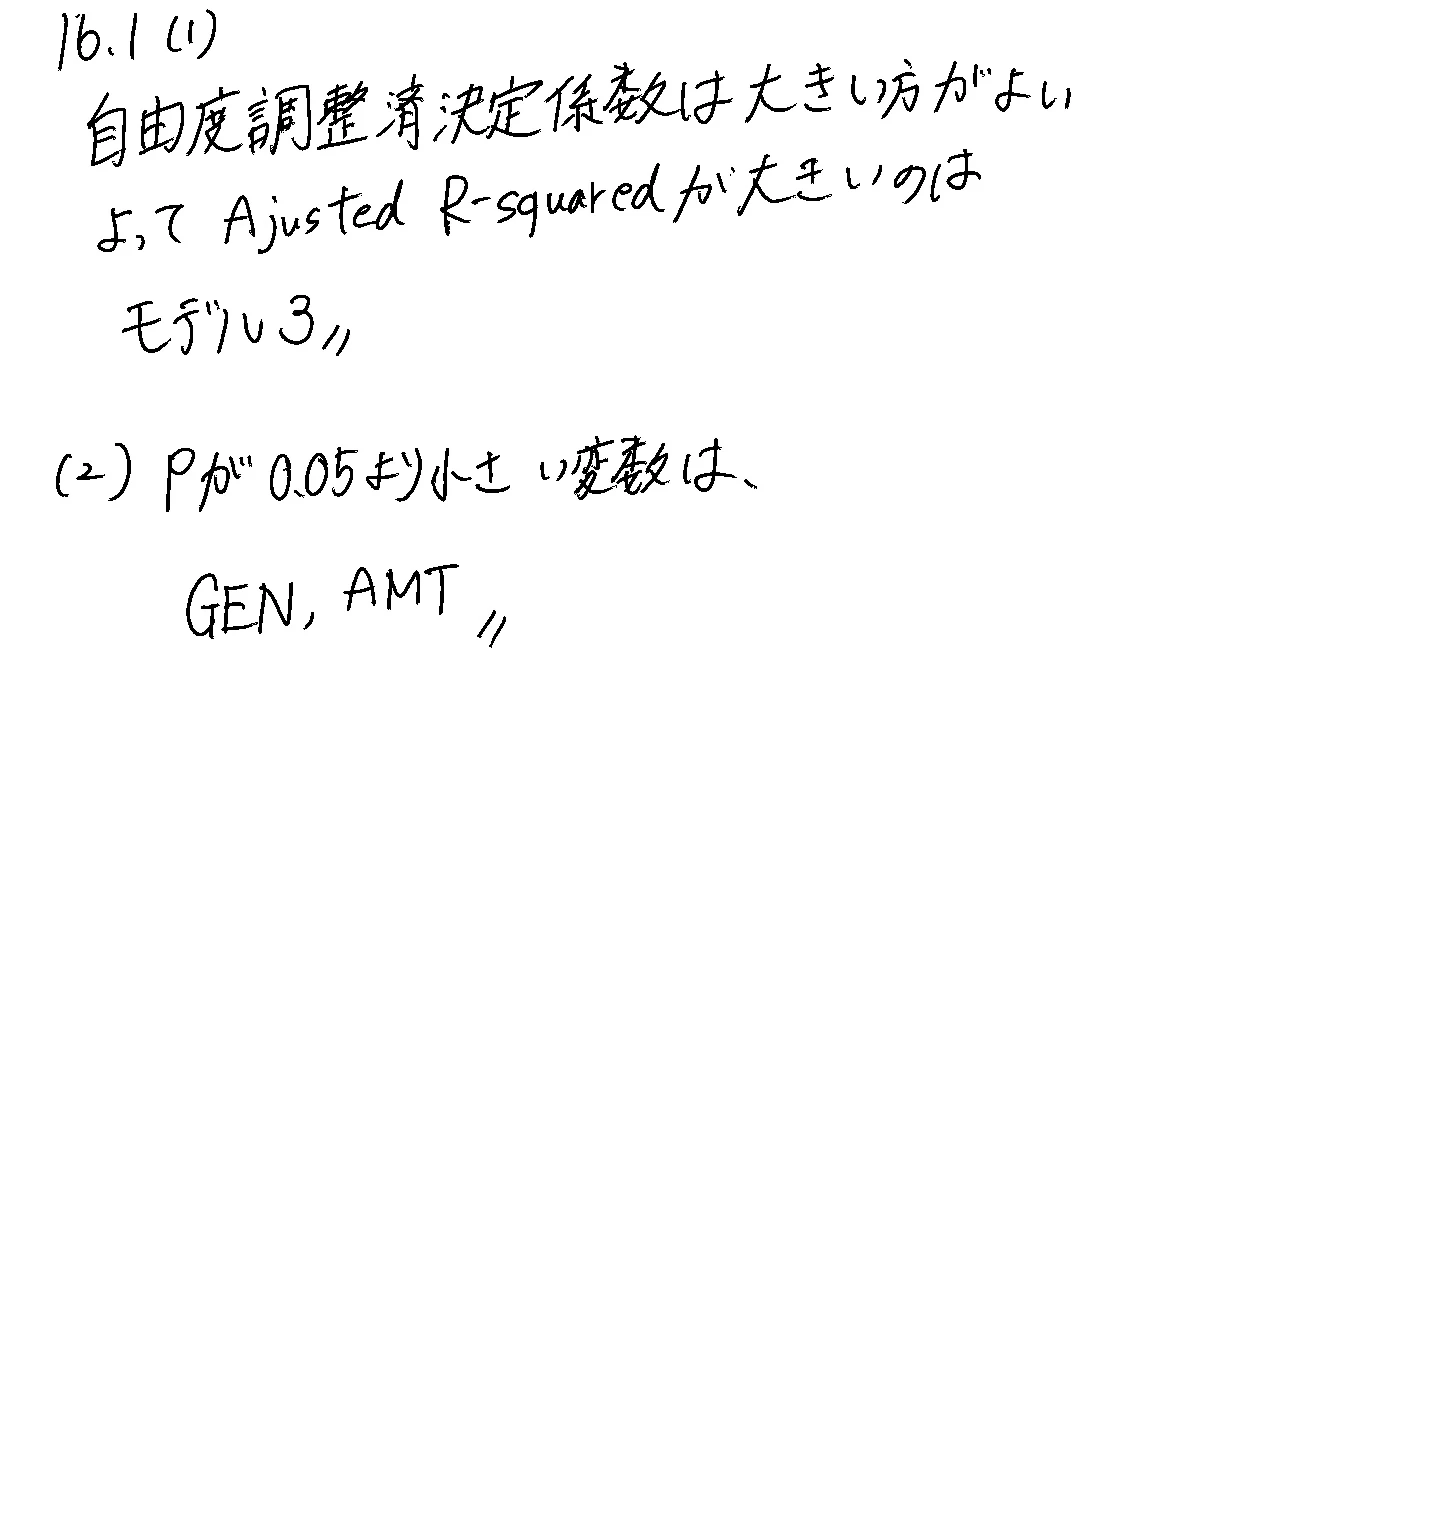 16.1 (1)
自由度調整済決定係数は大きい方がよい
よって Ajusted R-squaredが大きいのは
モデル3〃
(2) Pが0.05より小さい変数は、
GEN, AMT〃